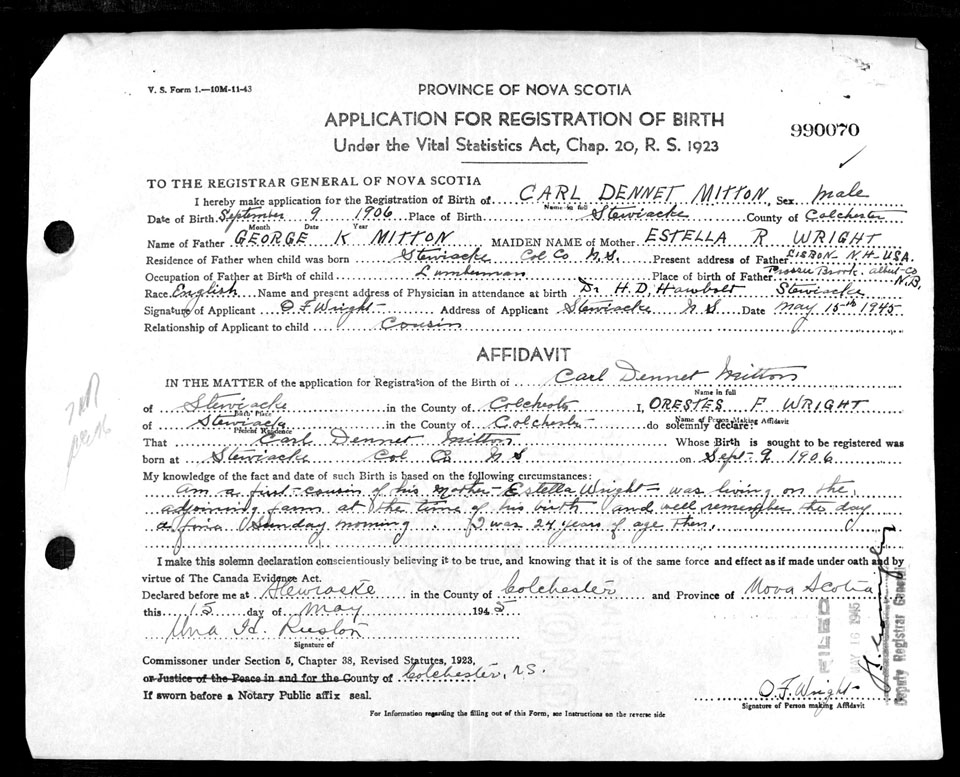 V. S. Form 1.—10M-11-43
PROVINCE OF NOVA SCOTIA
APPLICATION FOR REGISTRATION OF BIRTH
990070
Under the Vital Statistics Act, Chap. 20, R. S. 1923
TO THE REGISTRAR GENERAL OF NOVA SCOTIA
I hereby make application for Registration of Birth of CARL DENNET MITTON, Sex male
Name in full
Date of Birth September 9 1906 Place of Birth Stewiacke County of Colchester
Month Date Year
Name of Father GEORGE K MITTON MAIDEN NAME of Mother ESTELLA R WRIGHT
Residence of Father when child was born Stewiacke Col. Co. N.S. Present address of Father LISBON N.H. U.S.A.
Occupation of Father at Birth of child Lumberman Place of Birth of Father Prosser Brook, Albert Co N.B.
Race English Name and present address of Physician in attendance at birth Dr H. D. Hawbolt Stewiacke
Signature of Applicant O F Wright Address of Applicant Stewiacke N S Date May 15th 1945
Relationship of Applicant to child Cousin
AFFIDAVIT
IN THE MATTER of the application for Registration of the Birth of Carl Dennet Mitton
Name in full
of Stewiacke in the County of Colchester I, ORESTES F WRIGHT
Birth Place Name of Person Making Affidavit
of Stewiacke in the County of Colchester do solemnly declare:
Present Residence
That Carl Dennet Mitton Whose Birth is sought to be registered was
born at Stewiacke Col Co N S on Sept 9 1906
My knowledge of the fact and date of such Birth is based on the following circumstances:
Am a first-cousin of his Mother-Estella Wright- was living on the
adjoining farm at the time of his birth and well remember the day
a fine Sunday morning. I was 24 years of age then.
I make this solemn declaration conscientiously believing it to be true, and knowing that it is of the same force and effect as if made under oath and by
virtue of The Canada Evidence Act.
Declared before me at Stewiacke in the County of Colchester and Province of Nova Scotia
this 15 day of May 1945
Una H.
Signature of
Commissoner under Section 5, Chapter 38, Revised Statutes, 1923,
or Justice of the Peace in and for the County of Colchester, N.S.
If sworn before a Notary Public affix seal.
O. F. Wright
Signature of Person making Affidavit
For Information regarding the filling out of this Form, see Instructions on the reverse side
FILED
MAY 16 1945
Deputy Registrar General